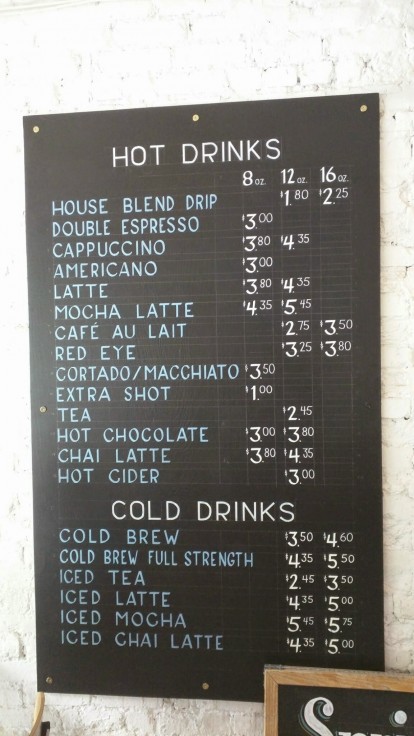 HOT DRINKS
8 oz. 12 oz. 16 oz.
HOUSE BLEND DRIP $1.80 $2.25
DOUBLE ESPRESSO $3.00
CAPPUCCINO $3.80 $4.35
AMERICANO $3.00
LATTE $3.80 $4.35
MOCHA LATTE $4.35 $5.45
CAFÉ AU LAIT $2.75 $3.50
RED EYE $3.25 $3.80
CORTADO/MACCHIATO $3.50
EXTRA SHOT $1.00
TEA $2.45
HOT CHOCOLATE $3.00 $3.80
CHAI LATTE $3.80 $4.35
HOT CIDER $3.00
COLD DRINKS
COLD BREW $3.50 $4.60
COLD BREW FULL STRENGTH $4.35 $5.50
ICED TEA $2.45 $3.50
ICED LATTE $4.35 $5.00
ICED MOCHA $5.45 $5.75
ICED CHAI LATTE $4.35 $5.00